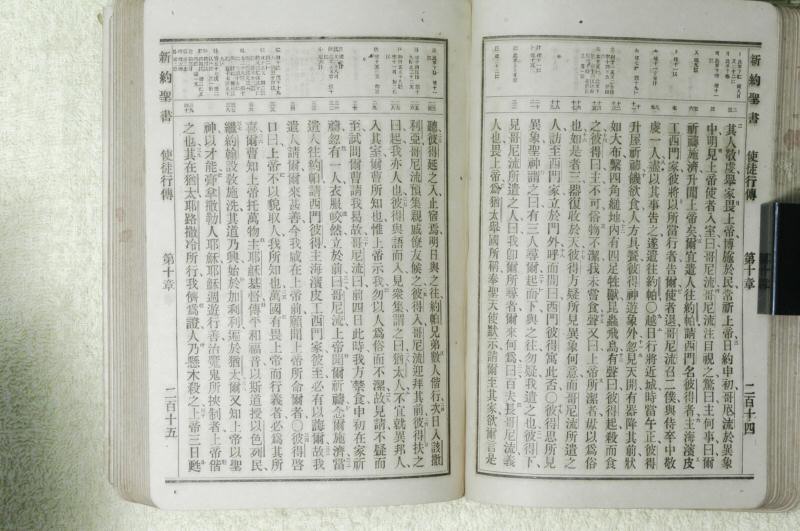 新約聖書 使徒行傳 第十章 二百十四
其人敬虔舉家畏上帝博施於民常祈上帝日約申初哥尼流於異象
中明見上帝使者入室曰哥尼流哥尼流注目視之驚曰主何事曰爾
祈禱施濟升聞上帝矣爾宜遣人往約帕請西門名彼得者主海濱皮
工西門家彼將以所當行者告爾使者退哥尼流召二僕與侍卒中敬
虔一人盡以其事告之遂遣往約帕〇越日行將近城時當午正彼得
升屋祈禱饑欲食人方具餐彼得神遊象外忽見天開有器降其前狀
如大布繫四角縋地內有四足牲獸昆蟲飛鳥有聲曰彼得起殺而食
之彼得曰主不可俗物不潔我未嘗食聲又曰上帝所潔者毋以爲俗
也如是者三器復收於天彼得方疑所見異象何意而哥尼流所遣之
人訪至西門家立於門外呼而問曰西門彼得寓此否〇彼得思所見
異象聖神謂之曰有三人尋爾起而下與之往勿疑我遣之也彼得下
見哥尼流所遣之人曰我卽爾所尋者爾來何爲曰百夫長哥尼流義
人也畏上帝爲猶太舉國所稱奉聖天使默示請爾至其家欲爾言是
聽彼得延之入止宿焉明日與之往約帕兄弟數人偕行次日入該撒
利亞哥尼流預集親戚僚友候之彼得入哥尼流迎拜其前彼得扶之
曰起我亦人也彼得與語而入見衆集謂之曰猶太人不宜就異邦人
入其室爾曹所知也惟上帝示我勿以人爲俗而不潔故見請不疑而
至試問爾曹請我曷故哥尼流曰前四日此時我方禁食申初在家祈
禱忽有一人衣服皎然立於前曰哥尼流上帝聞爾祈禱念爾施濟當
遣人往約帕請西門彼得主海濱皮工西門家彼至必有以誨爾故我
遣人請爾爾來甚善今我咸在上帝前願聞上帝所命爾者〇彼得啓
口曰上帝不以貌取人我所知也萬國有畏上帝而行義者必爲其所
喜爾曹知上帝托萬物主耶穌基督傳平和福音以斯道授以色列民
繼約翰設教施洗其道乃興始於加利利遍於猶太爾又知上帝以聖
神以才能膏拿撒勒人耶穌耶穌週遊行善治魔鬼所挾制者上帝偕
之也其在猶太耶路撒冷所行我儕爲證人乃懸木殺之上帝三日甦
新約聖書 使徒行傳 第十章 二百十五